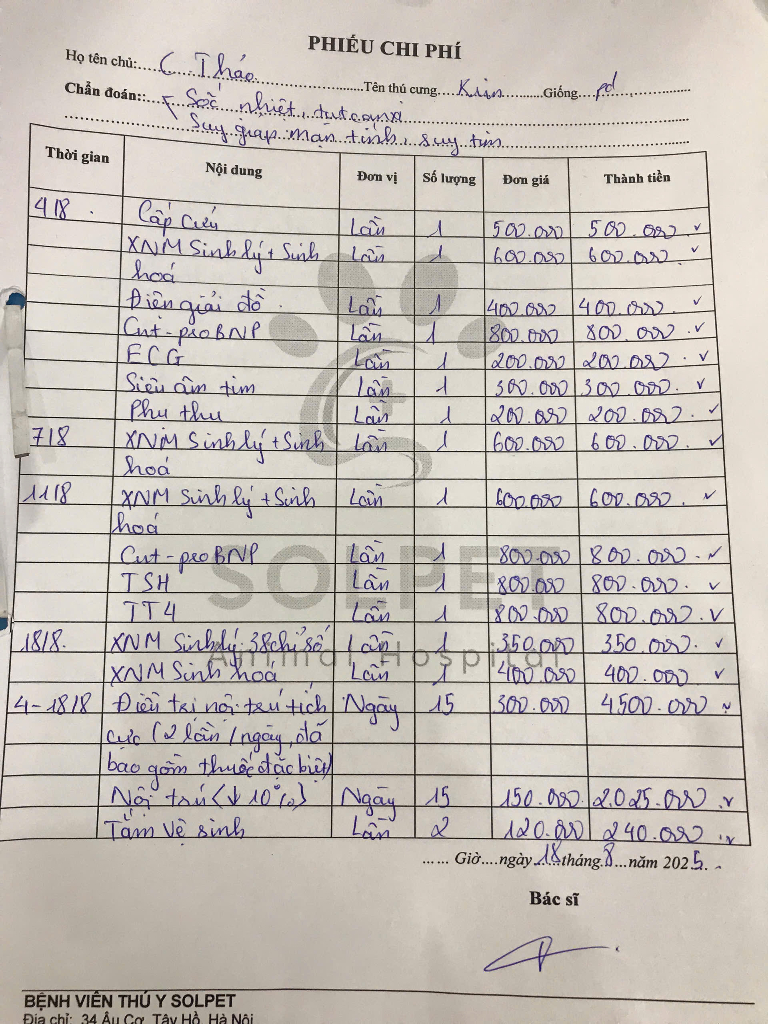 PHIẾU CHI PHÍ
Họ tên chủ: C Thảo Tên thú cưng Kin Giống pd
Chẩn đoán: Sốc nhiệt, tụt canxi
Suy giáp mạn tính, suy tim
Thời gian Nội dung Đơn vị Số lượng Đơn giá Thành tiền
4/8 Cấp cứu Lần 1 500.000 500.000 ✓
XNM Sinh lý + Sinh Lần 1 600.000 600.000 ✓
hoá
Điện giải đồ Lần 1 400.000 400.000 ✓
Cut-proBNP Lần 1 800.000 800.000 ✓
ECG Lần 1 200.000 200.000 ✓
Siêu âm tim Lần 1 300.000 300.000 ✓
Phụ thu Lần 1 200.000 200.000 ✓
7/8 XNM Sinh lý + Sinh Lần 1 600.000 600.000 ✓
hoá
11/8 XNM Sinh lý + Sinh Lần 1 600.000 600.000 ✓
hoá
Cut-proBNP Lần 1 800.000 800.000 ✓
TSH Lần 1 800.000 800.000 ✓
TT4 Lần 1 800.000 800.000 ✓
18/8. XNM Sinh lý 38 chỉ số Lần 1 350.000 350.000 ✓
XNM Sinh hoá Lần 1 400.000 400.000 ✓
4-18/8 Điều trị nội trú tích Ngày 15 300.000 4500.000 ✓
cực (2 lần/ngày, đã
bao gồm thuốc đặc biệt)
Nội trú (↓10%) Ngày 15 150.000 2.025.000 ✓
Tắm vệ sinh Lần 2 120.000 240.000 ✓
SOLPET
Animal Hospital
...... Giờ....ngày 18 tháng 8 năm 2025.
Bác sĩ
BỆNH VIÊN THÚ Y SOLPET
Địa chỉ: 34 Âu Cơ, Tây Hồ, Hà Nội